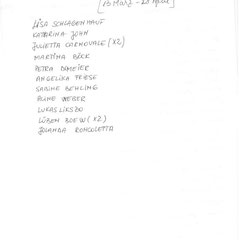 [13 MÄRZ - 20 April]
LISA SCHLAGENHAUF
KATARINA JOHN
JULIETTA CARNOVALE (X2)
MARTINA BÖCK
PETRA
ANGELIKA FRESE
SABINE BEHLING
RUNE WEBER
LUKAS LIKSZO
LÜBEN BOEW (X2)
JOLANDA RONCOLETTA